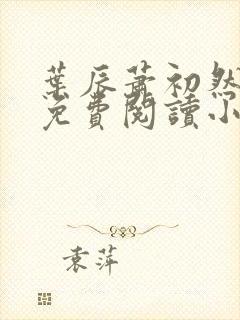 葉辰蕭初然
免費閱讀小
袁萍